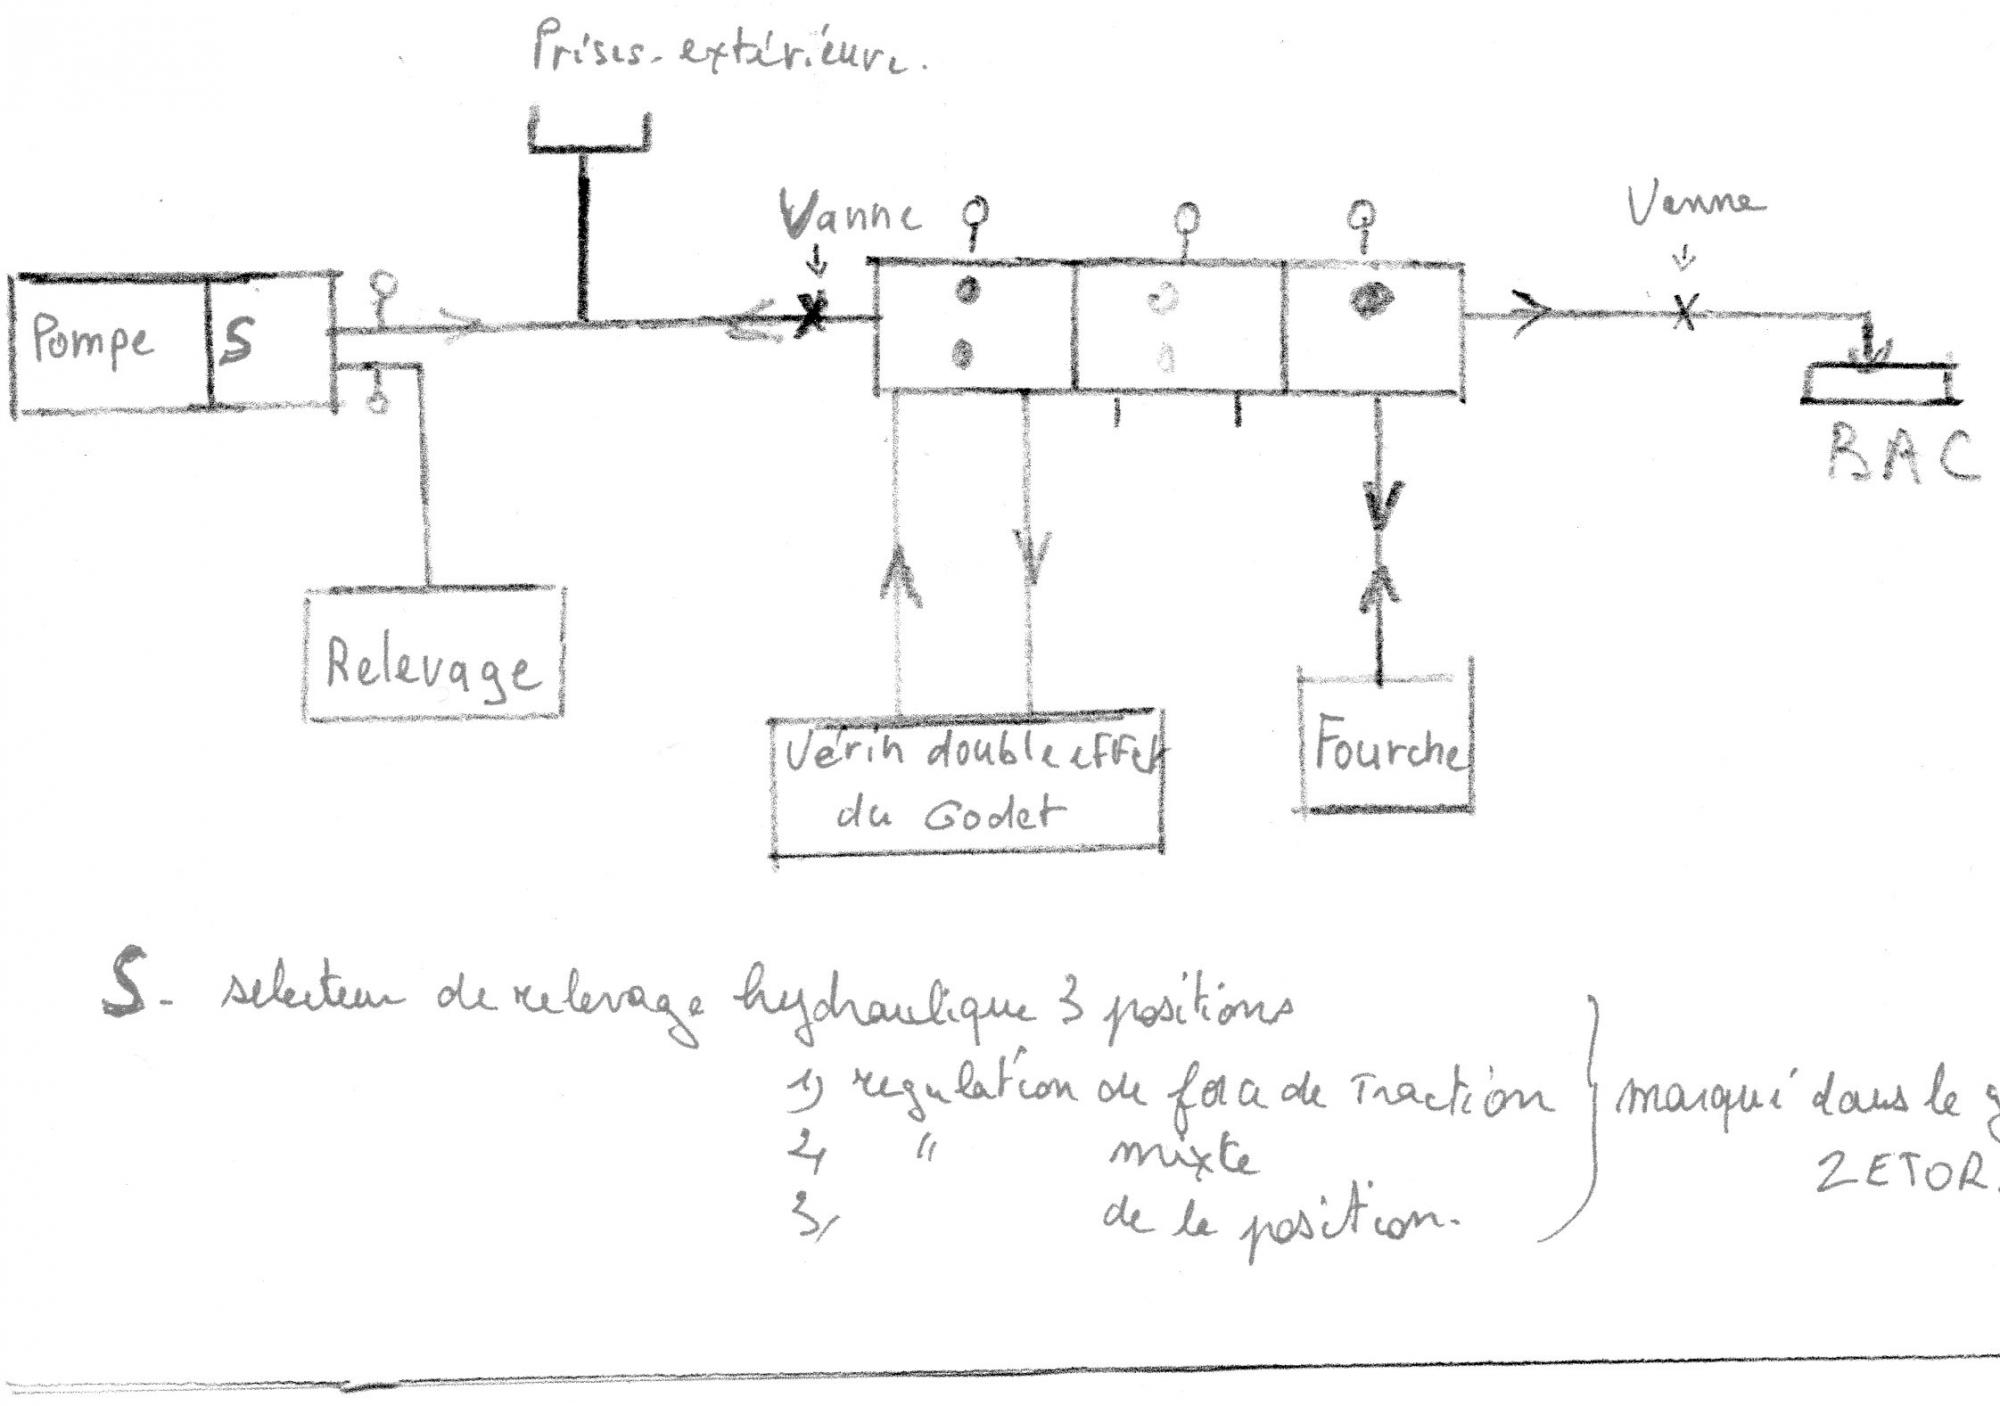 Prises. extérieure.
Vanne
Vanne
Pompe
S
BAC
Relevage
Vérin double effet
du Godet
Fourche
S - selecteur de relevage hydraulique 3 positions
1) regulation de force de Traction
marqué dans le g
2, " mixte
ZETOR.
3, de la position.